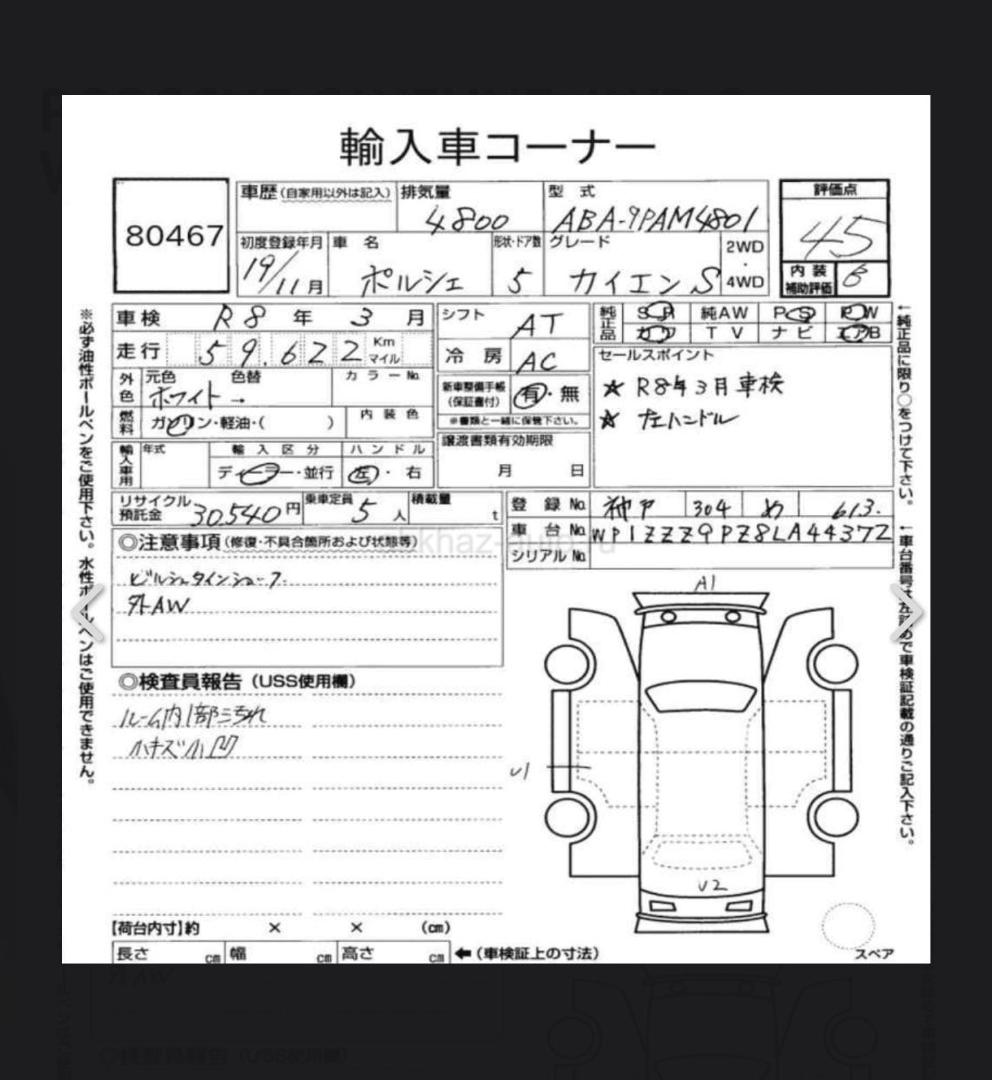 輸入車コーナー
80467
車歴(自家用以外は記入) 排気量 型式 評価点
4800 ABA-9PAM4801 45
初度登録年月 車名 形状・ドア数 グレード 2WD・4WD
19/11月 ポルシェ 5 カイエンS
内装補助評価 B
車検 R8年3月 シフト AT
純正品 SR 純AW PS PW
カワ TV ナビ エアB
走行 59.622 Km マイル 冷房 AC
外色 元色 色替 カラーNo.
ホワイト→
新車整備手帳(保証書付) 有・無
※書類と一緒に保管下さい。
燃料 ガソリン・軽油・( ) 内装色
譲渡書類有効期限
月 日
輸入車用 年式 輸入区分 ハンドル
ディーラー・並行 左・右
セールスポイント
★ R8年3月車検
★ 左ハンドル
リサイクル預託金 30,540円 乗車定員 5人 積載量 t
登録No. 神戸 304 め 613.
車台No. WP1ZZZ9PZ8LA44372
シリアルNo.
◎注意事項(修復・不具合箇所および状態等)
外AW
◎検査員報告(USS使用欄)
ルーム内1部ニ汚れ
小キズ小凹
A1
U1
U2
【荷台内寸】約 × × (cm)
長さ cm 幅 cm 高さ cm ←(車検証上の寸法)
スペア
※必ず油性ボールペンをご使用下さい。水性ボールペンはご使用できません。
←純正品に限り○をつけて下さい。